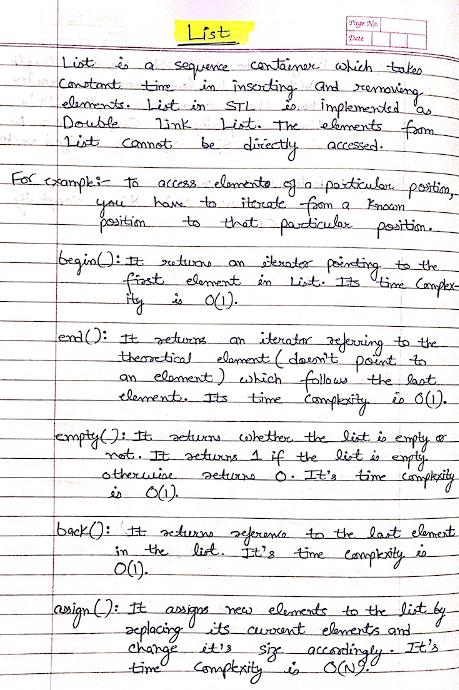 List
Page No.
Date
List is a sequence container which takes
constant time in inserting and removing
elements. List in STL is implemented as
Double Link List. The elements from
List cannot be directly accessed.
For example:- To access elements of a particular position,
you have to iterate from a known
position to that particular position.
begin(): It returns an iterator pointing to the
first element in List. Its time Complex-
ity is O(1).
end(): It returns an iterator referring to the
theoretical element (doesn't point to
an element) which follows the last
elements. Its time Complexity is O(1).
empty(): It returns whether the list is empty or
not. It returns 1 if the list is empty
otherwise returns 0. It's time complexity
is O(1).
back(): It returns reference to the last element
in the list. It's time complexity is
O(1).
assign(): It assigns new elements to the list by
replacing its current elements and
change it's size accordingly. It's
time Complexity is O(N).